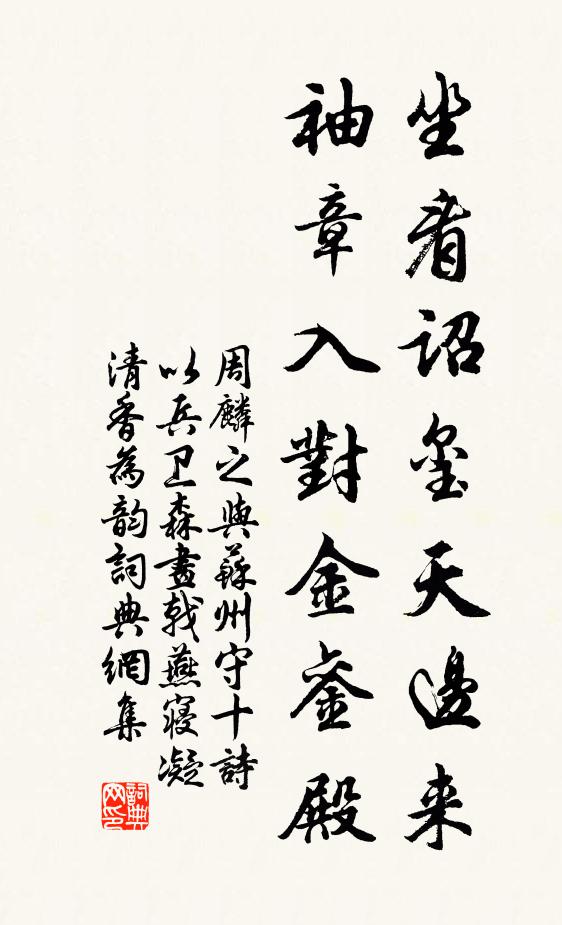 坐看詔玺天邊来
袖章入對金銮殿
周麟之與蘇州守十詩
以兵卫森畫戟燕寢凝
清香為韵詞典網集
詞典网印